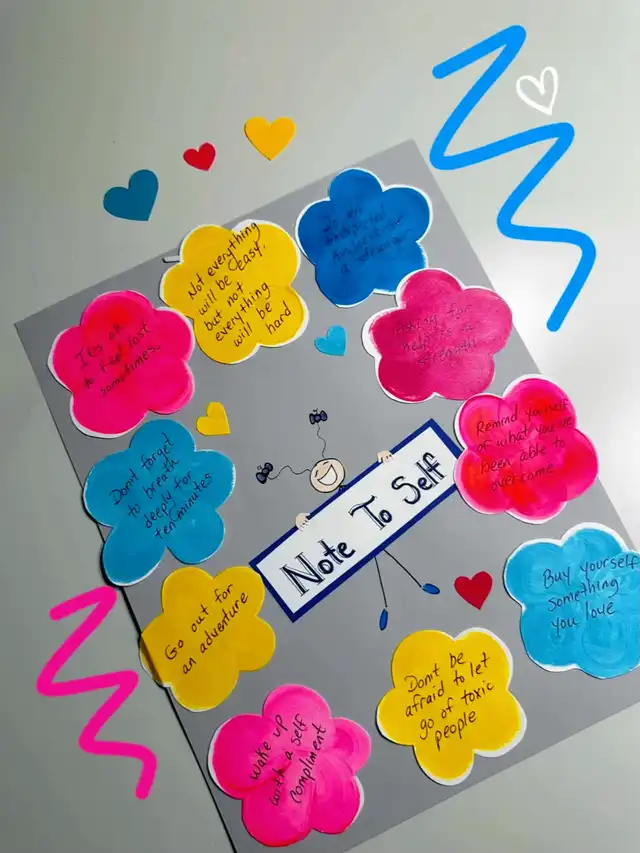 Note To Self
Not everything
will be easy,
but not
everything
will be
hard
Asking for
help is a
strength
Remind yourself
of what you've
been able to
overcome
Buy yourself
something
you love
Don't be
afraid to let
go of toxic
people
Wake up
with a self
compliment
Go out for
an adventure
Don't forget
to breath
deeply for
ten minutes
It's ok
to feel lost
sometimes.